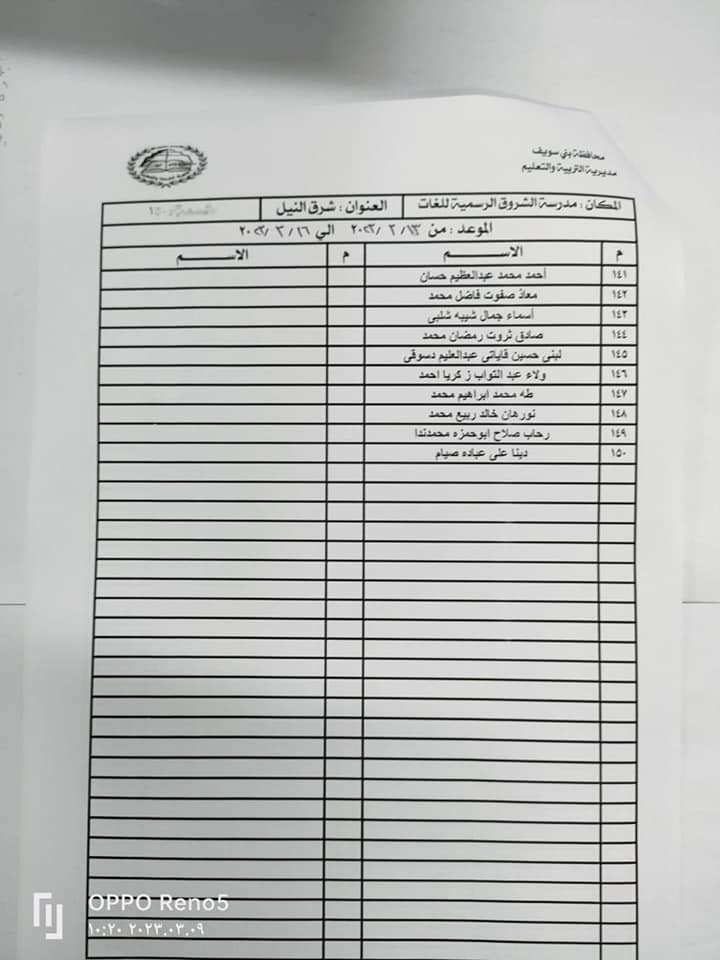 محافظة بني سويف
مديرية التربية والتعليم
المكان : مدرسة الشروق الرسمية للغات العنوان : شرق النيل ١٥٠
الموعد : من ٢٠٢٣/٣/١٣ الي ٢٠٢٣/٣/١٦
م الاســـم م الاســـم
١٤١ أحمد محمد عبدالعظيم حسان
١٤٢ معاذ صفوت فاضل محمد
١٤٣ أسماء جمال شيبه شلبى
١٤٤ صادق ثروت رمضان محمد
١٤٥ لبنى حسين قاياتى عبدالعليم دسوقى
١٤٦ ولاء عبد التواب ز كريا احمد
١٤٧ طه محمد ابراهيم محمد
١٤٨ نورهان خالد ربيع محمد
١٤٩ رحاب صلاح ابوحمزه محمدندا
١٥٠ دينا على عباده صيام
OPPO Reno5
١٠:٢٠ ٢٠٢٣.٠٣.٠٩